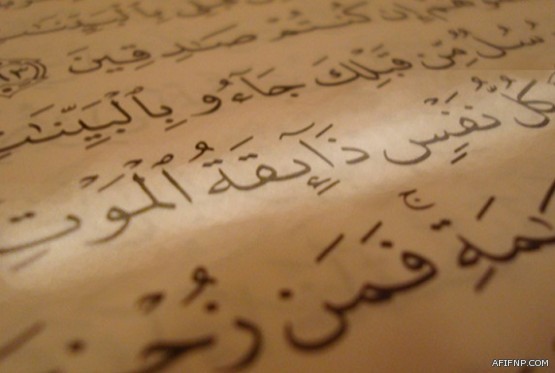 إِن كُنتُمْ صَـٰدِقِينَ
رُسُلٌ مِّن قَبْلِكَ جَآءُو بِٱلْبَيِّنَـٰتِ
كُلُّ نَفْسٍ ذَآئِقَةُ ٱلْمَوْتِ
فَمَن زُحْزِ
AFIFNP.COM